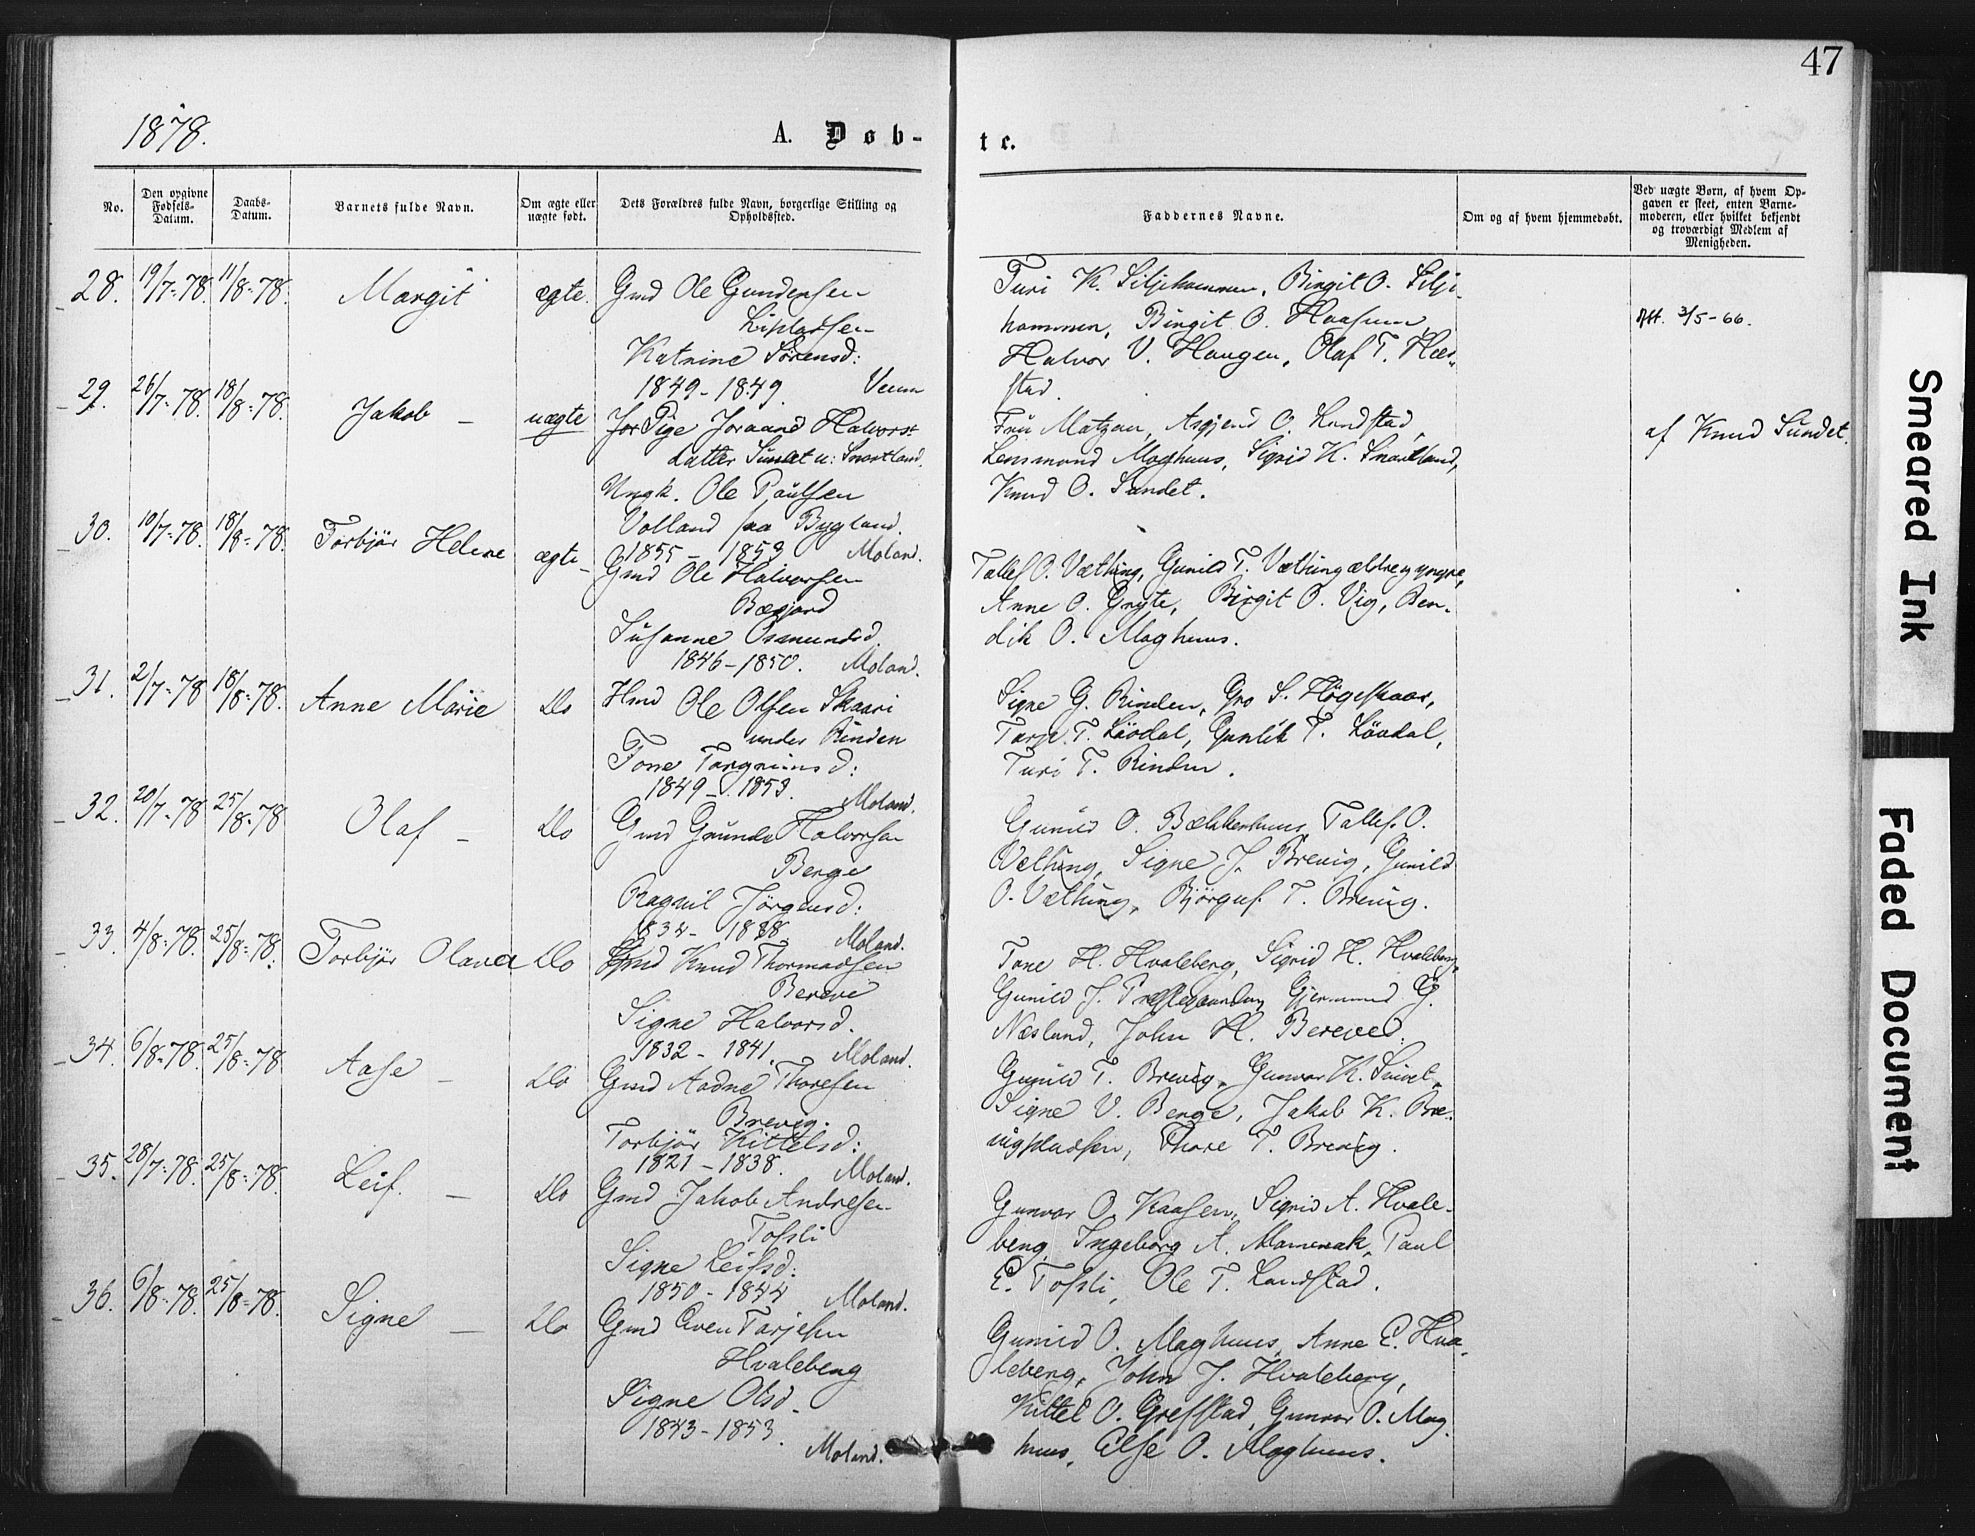 47
1878.
A. Døb-
te.
No.
Den opgivne Fødsels-Datum.
Daabs-Datum.
Barnets fulde Navn.
Om ægte eller uægte født.
Dets Forældres fulde Navn, borgerlige Stilling og Opholdssted.
Faddernes Navne.
Om og af hvem hjemmedøbt.
Ved uægte Børn, af hvem Opgaven er skeet, enten Barnemoderen, eller hvilket bekjendt og troværdigt Medlem af Menigheden.
28. 19/7-78. 11/8-78. Margit ægte. Gmd Ole Gundersen
Katrine Sørensd:
1849-1849. Veum
Turi K. Siljehommen, Birgit O. Silje-
hommen, Birgit O. Haasum,
Halvor V. Haugen, Olaf T. Hæs-
stad.
Att. 3/5-66.
29. 26/7-78. 18/8-78. Jakob - uægte Pige Joraand Halvors-
datter Sundet u: Snartland.
Ungk. Ole Paulsen
Volland paa Bygland.
1855-1853 Moland.
Fru Matzau, Asgjerd O. Landstad,
Lensmand Maghuus, Sigrid K. Snartland,
Knud O. Sundet.
af Knud Sundet.
30. 10/7-78. 18/8-78. Torbjør Helene ægte- Gmd Ole Halvorsen
Susanne Osmundsd.
1846-1850. Moland.
Tallef O. Væthing, Gunild T. Væthing ældre og yngre,
Anne O. Gryte, Birgit O. Vig, Ben-
dik O. Maghuus.
31. 2/7-78 18/8-78. Anne Marie Do Hmd Ole Olsen Skaari
under Rinden
Tone Targrimsd:
1849-1853. Moland.
Signe G. Rinden, Gro S. Høgeskaar,
Tarje T. Løvdal, Gunlik T. Løvdal,
Turi T. Rinden.
32. 20/7-78 25/8-78 Olaf - Do Gmd Gunder Halvorsen
Berge
Ragnil Jørgensd:
1834-1838 Moland.
Gunild O. Bækkenhuus, Tallef O.
Væthing, Signe J. Brevig, Gunild
O. Væthing, Bjørguf T. Brevig.
33. 4/8-78. 25/8-78. Torbjør Olava Do Gmd Knud Thormodsen
Bereve
Signe Halvorsd.
1832-1841. Moland.
Tone H. Hvaleberg, Sigrid H. Hvaleberg,
Gunild J. Præstegaarden, Gjermund G.
Næsland, John H. Bereved.
34. 6/8-78. 25/8-78 Aase - Do Gmd Aadne Thoresen
Brevig.
Torbjør Kittelsd:
1821-1838. Moland.
Gunild T. Brevig, Gunvor K.
Signe V. Berge, Jakob K. Bre-
vigpladsen, Thore T. Brevig.
35. 28/7-78. 25/8-78. Leif. - Do Gmd Jakob Andresen
Tofsli
Signe Leifsd:
1850-1844 Moland.
Gunvor O. Kaasen, Sigrid A. Hvale-
berg, Ingeborg A. Mamerak, Paul
E. Tofsli, Ole T. Landstad.
36. 6/8-78. 25/8-78. Signe - Do Gmd Even Tarjesen
Hvaleberg
Signe Olsd.
1843-1853. Moland.
Gunild O. Maghuus, Anne E. Hva-
leberg, John J. Hvaleberg,
Kittel O. Grefstad, Gunvor O. Mag-
huus, Else O. Maghuus.
Smeared Ink
Faded Document